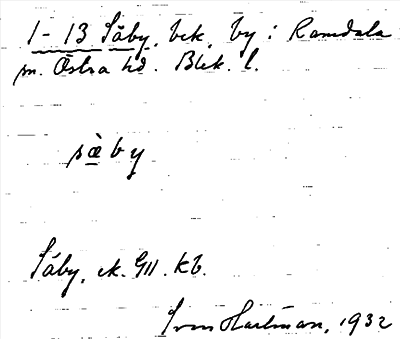 1-13 Säby, bek. by i Ramdala
sn. Östra hd. Blek. l.
sàby
Säby, ek. GII. Kb.
Sven Hartman, 1932